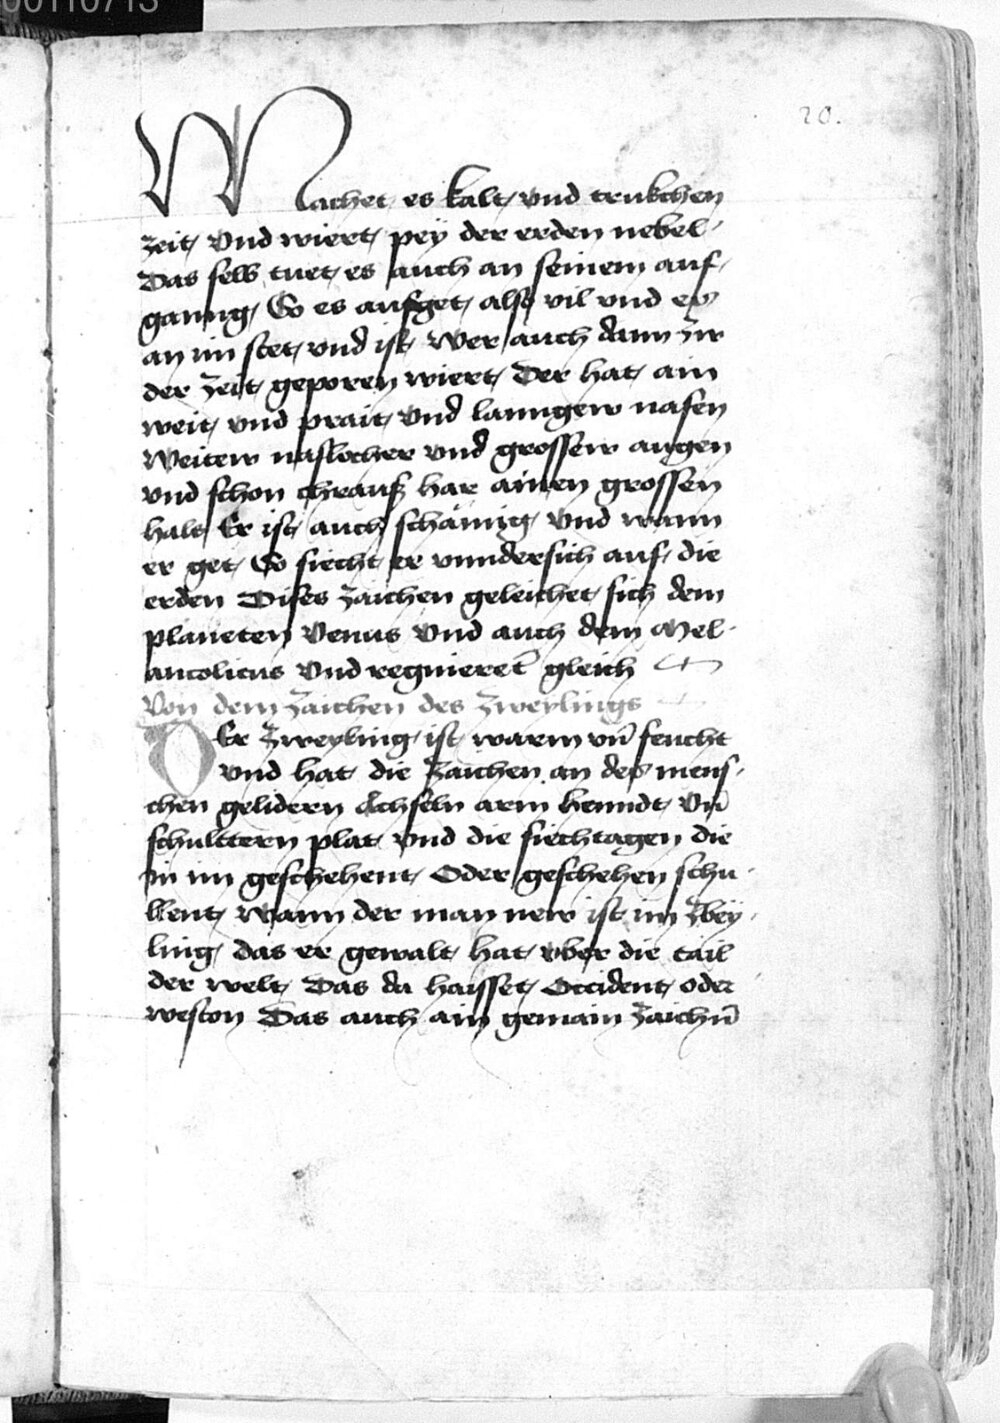 00110713
20.
Machet es kalt vnd trukchen
zeit vnd wiert pey der erden nebel
Das selb tuet es auch an seinem auf
ganng So es aufget also vil vnd es
an im stet vnd ist Wer auch dann zw
der zeit geporen wiert Der hat ain
weit vnd prait vnd lanngew nasen
Weitew naslocher vnd grossew augen
vnd schon chrauß har ainen grossen
hals Er ist auch schämig vnd wann
er get So siecht er vnndersich auf die
erden Dises zaichen geleichet sich dem
planeten Venus vnd auch dem Mel-
ancolicus vnd regnieret gleich
Von dem zaichen des Zweylings
Der Zweyling ist warm vn̄ feucht
vnd hat die zaichen an des mens-
chen gelidern Achseln arm henndt vn̄
schulttern plat vnd die siechtagen die
in im geschehent Oder geschehen schu-
llent Wann der man new ist im zwey-
ling das er gewalt hat vber die tail
der welt Das da haisset Occident oder
weston Das auch ain gemain zaichn̄